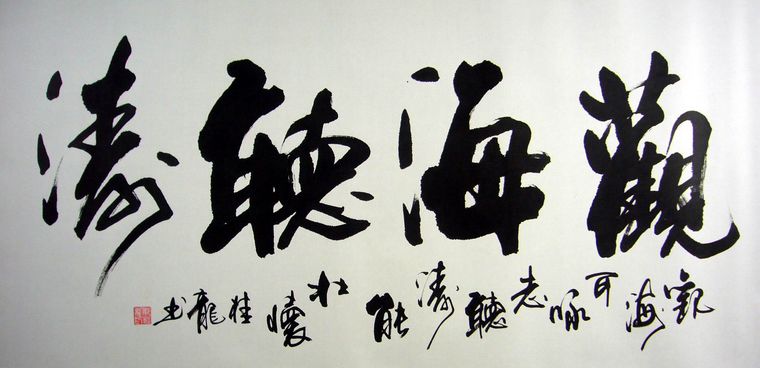 觀海聽濤
觀海可咏志聽濤能壯懷 桂龍书